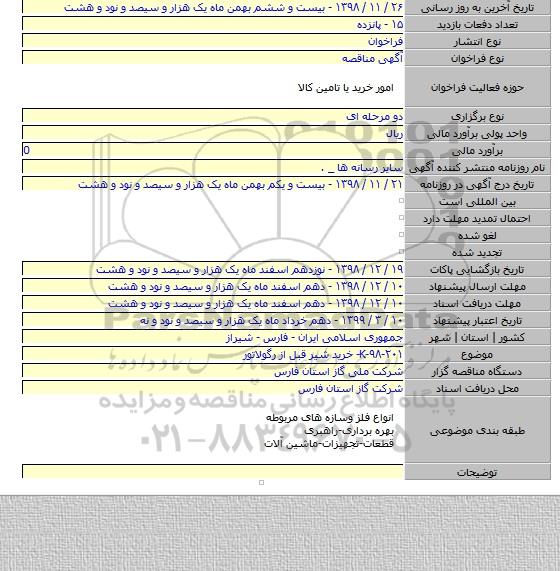 تاریخ آخرین به روز رسانی ۲۶ / ۱۱ / ۱۳۹۸ - بیست و ششم بهمن ماه یک هزار و سیصد و نود و هشت
تعداد دفعات بازدید ۱۵ - پانزده
نوع انتشار فراخوان
نوع فراخوان آگهی مناقصه
حوزه فعالیت فراخوان امور خرید با تامین کالا
نوع برگزاری دو مرحله ای
واحد پولی برآورد مالی ریال
برآورد مالی 0
نام روزنامه منتشر کننده آگهی سایر رسانه ها _ .
تاریخ درج آگهی در روزنامه ۲۱ / ۱۱ / ۱۳۹۸ - بیست و یکم بهمن ماه یک هزار و سیصد و نود و هشت
بین المللی است
احتمال تمدید مهلت دارد
لغو شده
تجدید شده
تاریخ بازگشایی پاکات ۱۹ / ۱۲ / ۱۳۹۸ - نوزدهم اسفند ماه یک هزار و سیصد و نود و هشت
مهلت ارسال پیشنهاد ۱۰ / ۱۲ / ۱۳۹۸ - دهم اسفند ماه یک هزار و سیصد و نود و هشت
مهلت دریافت اسناد ۱۰ / ۱۲ / ۱۳۹۸ - دهم اسفند ماه یک هزار و سیصد و نود و هشت
تاریخ اعتبار پیشنهاد ۱۰ / ۳ / ۱۳۹۹ - دهم خرداد ماه یک هزار و سیصد و نود و نه
کشور | استان | شهر جمهوری اسلامی ایران - فارس - شیراز
موضوع K-۹۸-۲۰۱- خرید شیر قبل از رگولاتور
دستگاه مناقصه گزار شرکت ملی گاز استان فارس
محل دریافت اسناد شرکت گاز استان فارس
طبقه بندی موضوعی انواع فلز وسازه های مربوطه
بهره برداری-راهبری
قطعات-تجهیزات-ماشین آلات
توضیحات
پایگاه اطلاع رسانی مناقصه و مزایده